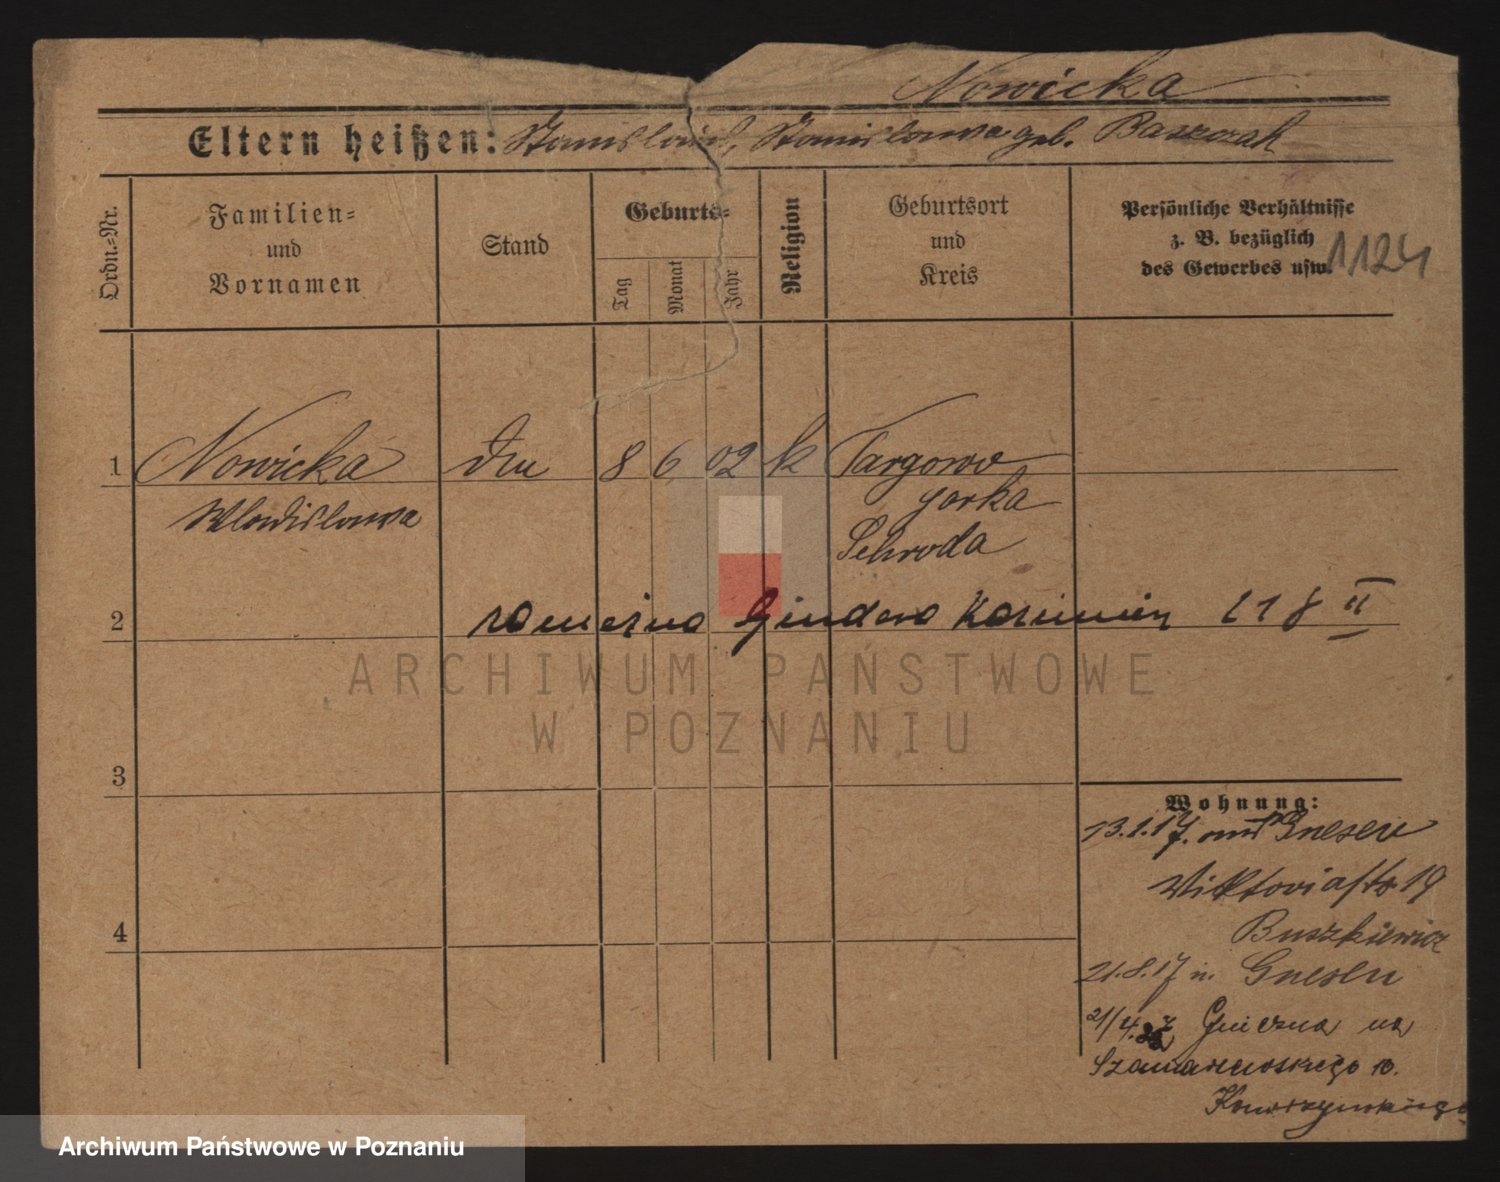 Nowicka
Eltern heißen: Stanislaus, Stanislawa geb. Baszczak
Ordn.-Nr.
Familien-
und
Vornamen
Stand
Geburts-
Tag
Monat
Jahr
Religion
Geburtsort
und
Kreis
Persönliche Verhältnisse
z. B. bezüglich
des Gewerbes usw.
1124
1 Nowicka 8 6 02 k Targowo
Wladislawa
gorka
Schroda
2
zamężna Kazimierz II
3
4
Wohnung:
13.1.17. Gnesen
Viktoriastr 19
Buszkiewicz
21.8.17 n. Gnesen
21/4. Gniezna na
Szamarzewskiego 10.
ARCHIWUM PAŃSTWOWE
W POZNANIU
Archiwum Państwowe w Poznaniu